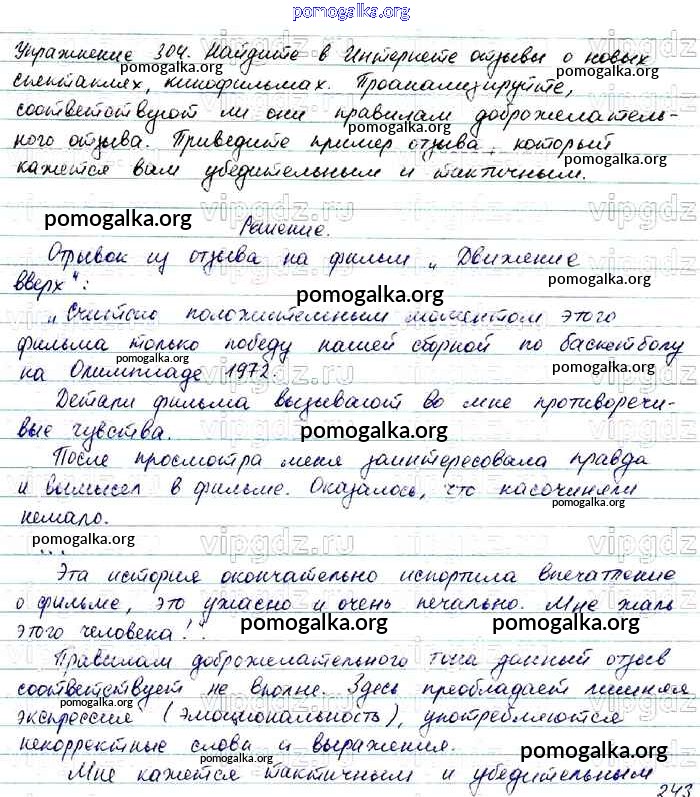 pomogalka.org
Упражнение 304. Найдите в Интернете отзывы о новых
спектаклях, кинофильмах. Проанализируйте,
соответствуют ли они правилам доброжелатель-
ного отзыва. Приведите пример отзыва, который
кажется вам убедительным и тактичным.
pomogalka.org
Решение.
Отрывок из отзыва на фильм „Движение
вверх":
pomogalka.org
„Считаю положительным моментом этого
фильма только победу нашей сборной по баскетболу
pomogalka.org
на Олимпиаде 1972.
Детали фильма вызывают во мне противоречи-
вые чувства.
pomogalka.org
После просмотра меня заинтересовала правда
и вымысел в фильме. Оказалось, что насочиняли
немало.
pomogalka.org
...
Эта история окончательно испортила впечатление
о фильме, это ужасно и очень печально. Мне жаль
этого человека!"
pomogalka.org
Правилам доброжелательного тона данный отзыв
соответствует не вполне. Здесь преобладает лишняя
pomogalka.org
экспрессия (эмоциональность), употребляются
некорректные слова и выражения.
pomogalka.org
Мне кажется тактичным и убедительным
243
vipgdz.ru